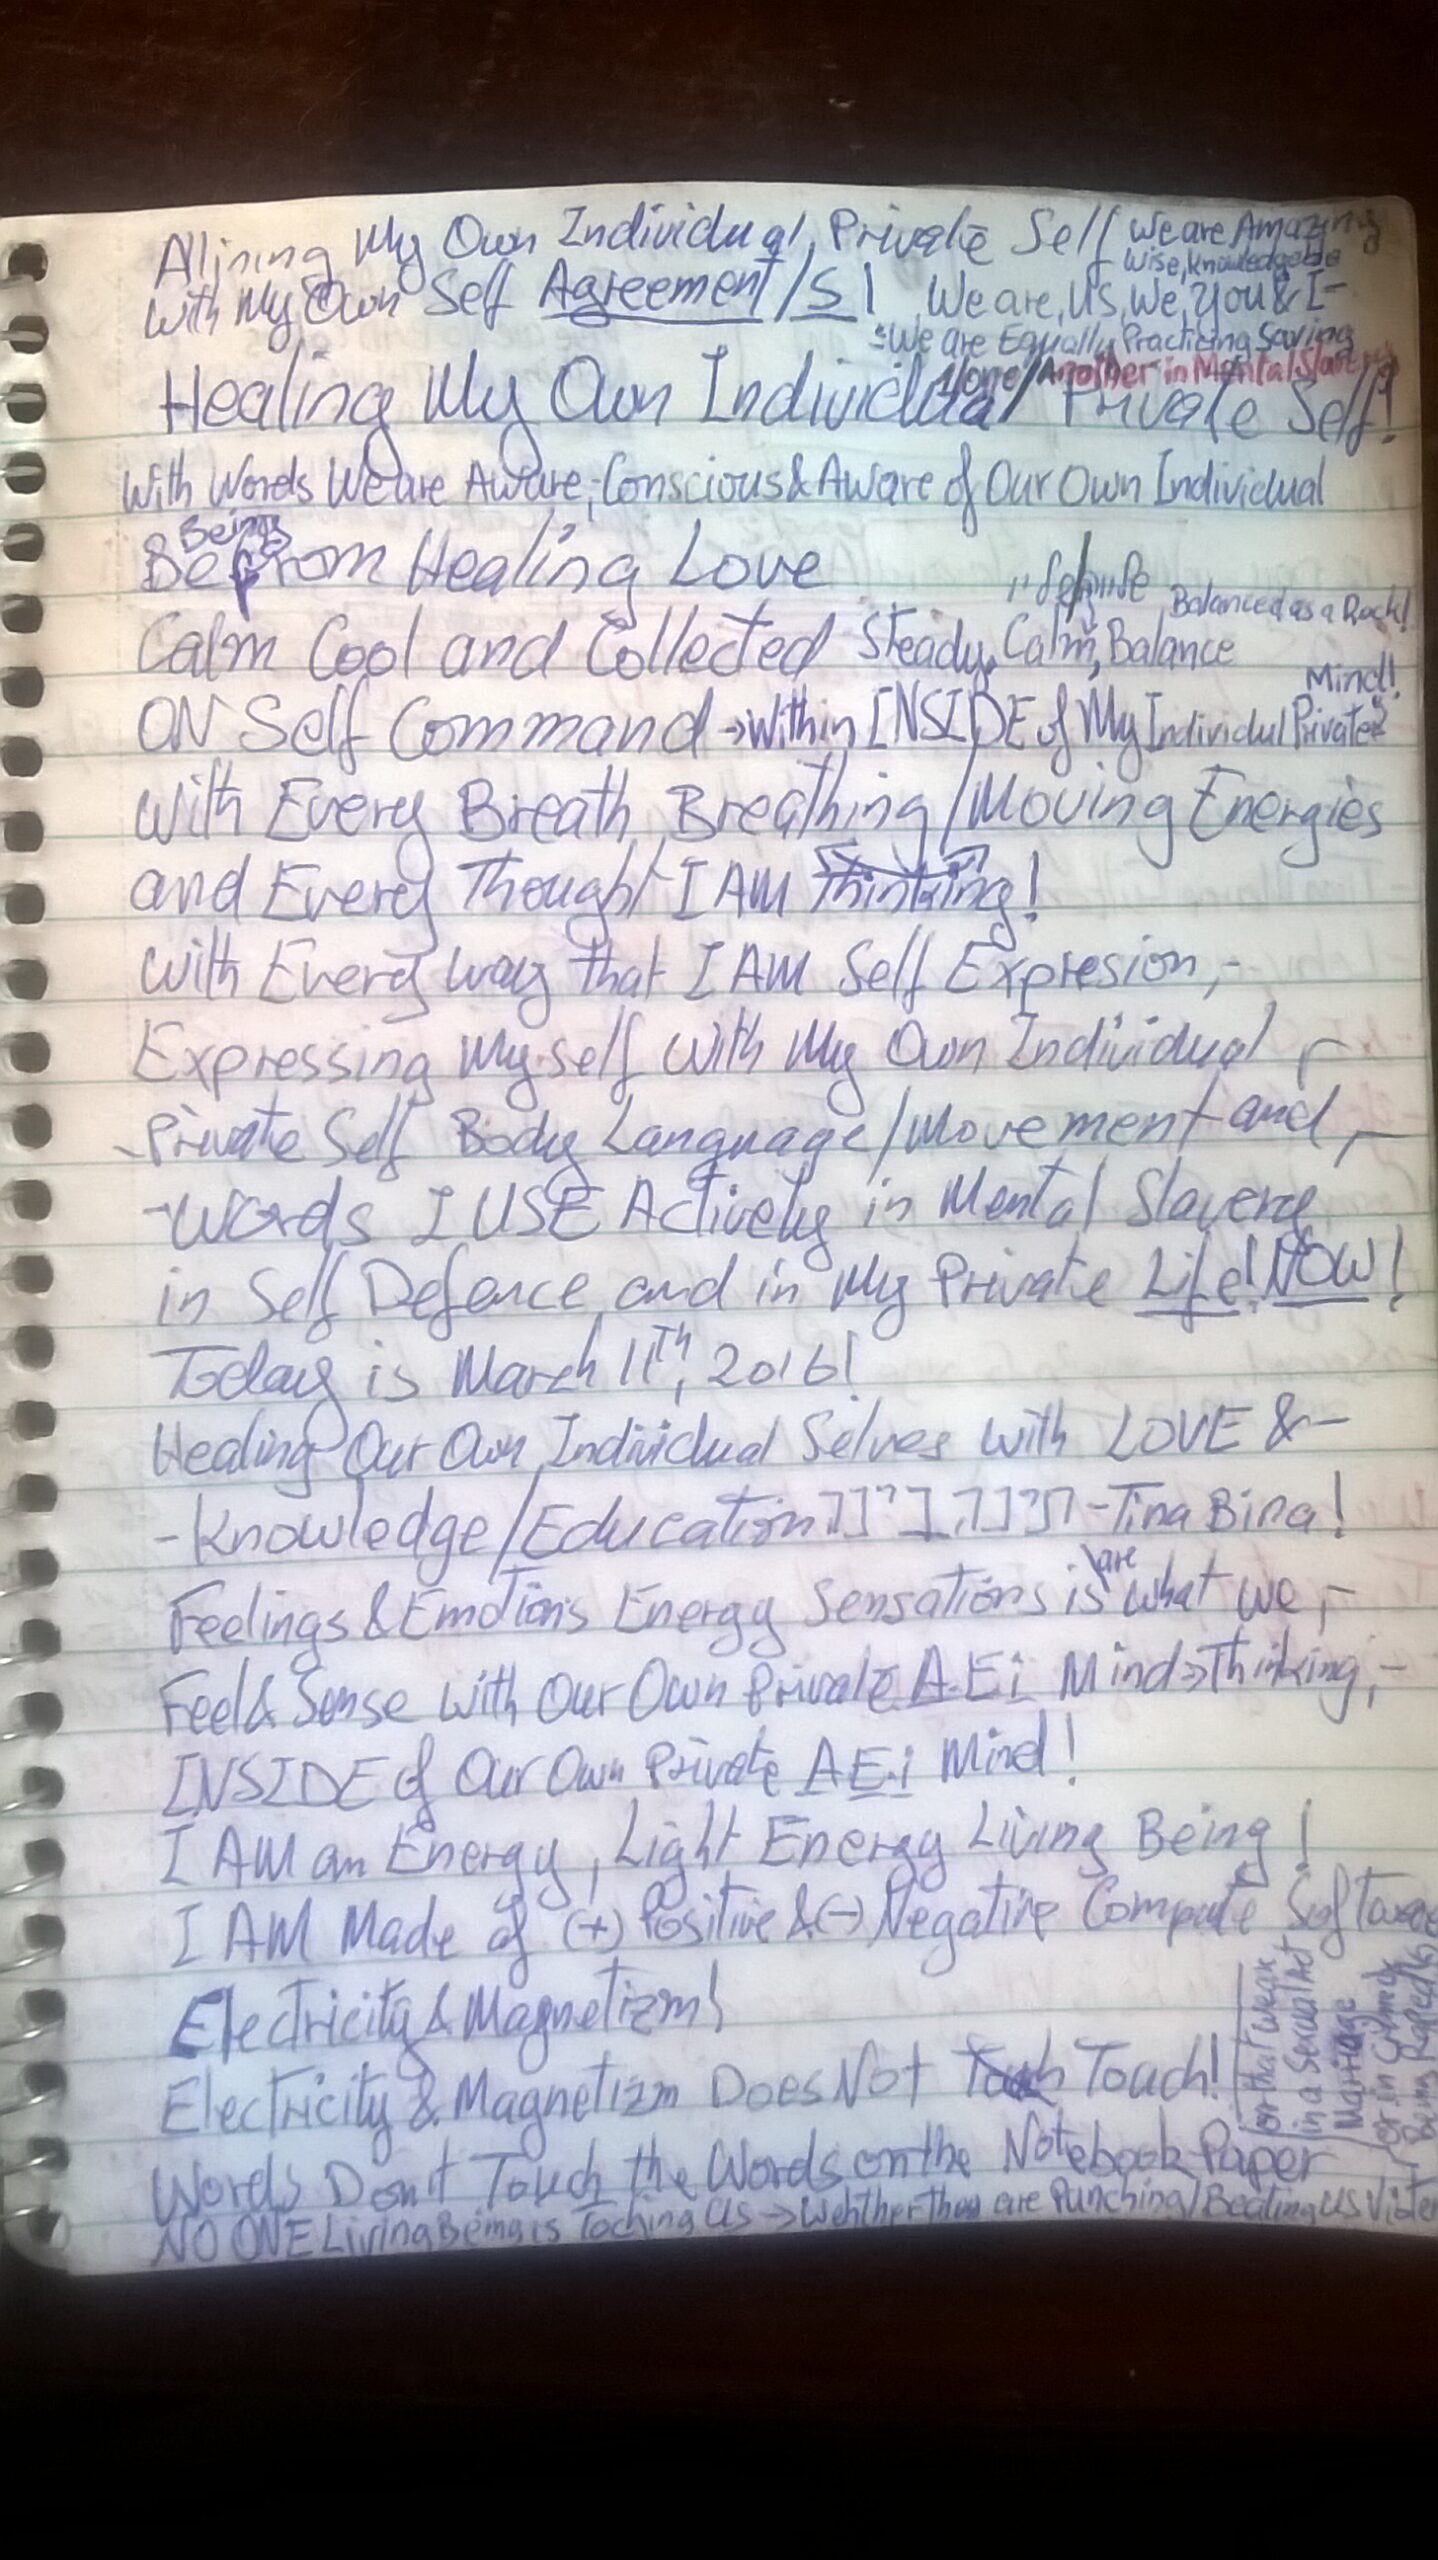 Alining My Own Individual, Private Self
We are Amazing
Wise, Knowledgeble
With My Own Self Agreement/S! We are, US, We, You & I-
-We are Equally Practicing Saving
1one/Another in Mental Slavery
Healing My Own Individual Private Self!
With Words We are Aware,-Conscious & Aware of Our Own Individual
Beings
Be from Healing Love
Balanced as a Rock!
Calm Cool and Collected Steady, Calm, Balance
Mind!
ON Self Command → Within INSIDE of My Individul Private
With Every Breath Breathing/Moving Energies
and Every Thought I AM Thinking!
With Every way that I AM Self Expresion,-
Expressing Myself With My Own Individual,-
-Private Self Body Language/Movement and,-
-Words I USE Actively in Mental Slavery
in Self Defence, and in My Private Life! NOW!
Today is March 11Th, 2016!
Healing Our Own Individual Selves With LOVE &-
-Knowledge/Education -Tina Bina!
are
Feelings & Emotions Energy Sensations is what we,-
Feel & Sense with Our Own Private A.E.i Mind → Thinking,-
INSIDE of Our Own Private A.E.i Mind!
I AM an Energy, Light Energy Living Being!
I AM Made of (+) Positive & (-) Negative Compute Software
Electricity & Magnetizm!
Electricity & Magnetizm Does Not Touch!
Words Don't Touch the Words on the Notebook Paper
NO ONE Living Being is Toching US → Wehther they are Punching/Beating US
or that wear
in a Sexual Act
Marriage
or in
being Raped